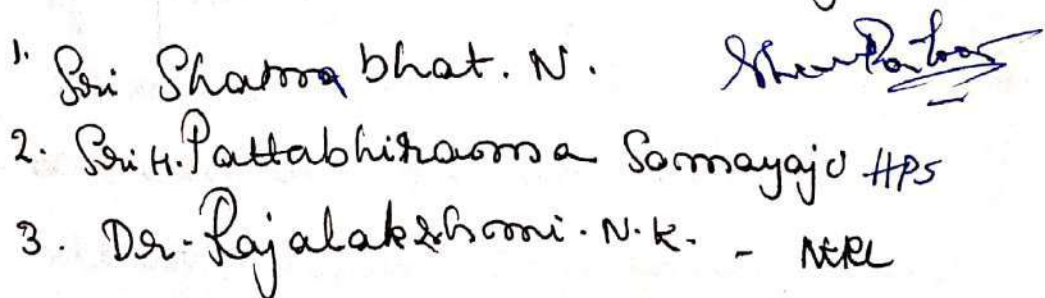 1. Sri Shama bhat. N.
2. Sri H. Pattabhirama Somayaji HPS
3. Dr. Rajalakshmi. N. K. - NKRL